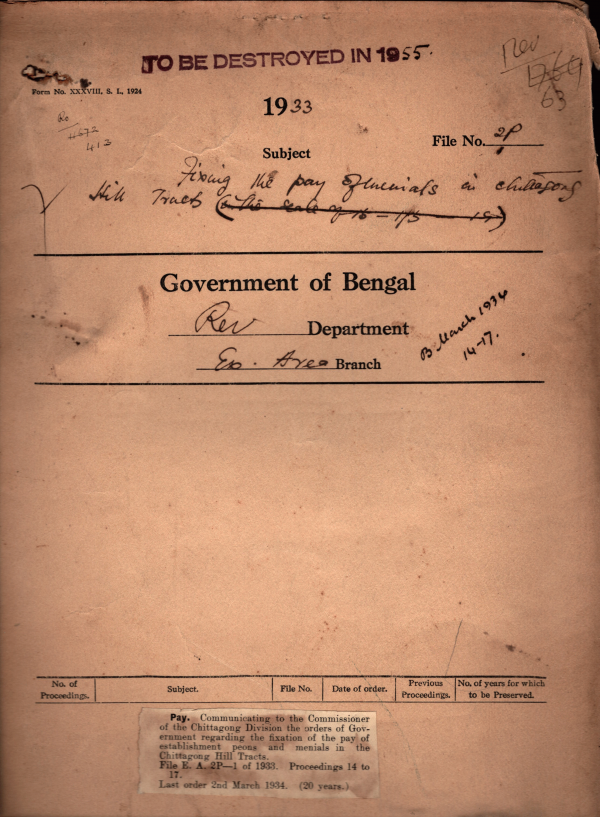 TO BE DESTROYED IN 1955.
Rev
63
Form No. XXXVIII, S. I., 1924
1933
413
File No. 2P
1
Subject
Fixing the pay of menials in Chittagong
Hill Tracts
Government of Bengal
Rev Department
Ex. Area Branch
B March 1934
14-17.
No. of Proceedings.
Subject.
File No.
Date of order.
Previous Proceedings.
No. of years for which to be Preserved.
Pay. Communicating to the Commissioner
of the Chittagong Division the orders of Gov-
ernment regarding the fixation of the pay of
establishment peons and menials in the
Chittagong Hill Tracts.
File E. A. 2P—1 of 1933. Proceedings 14 to
17.
Last order 2nd March 1934. (20 years.)